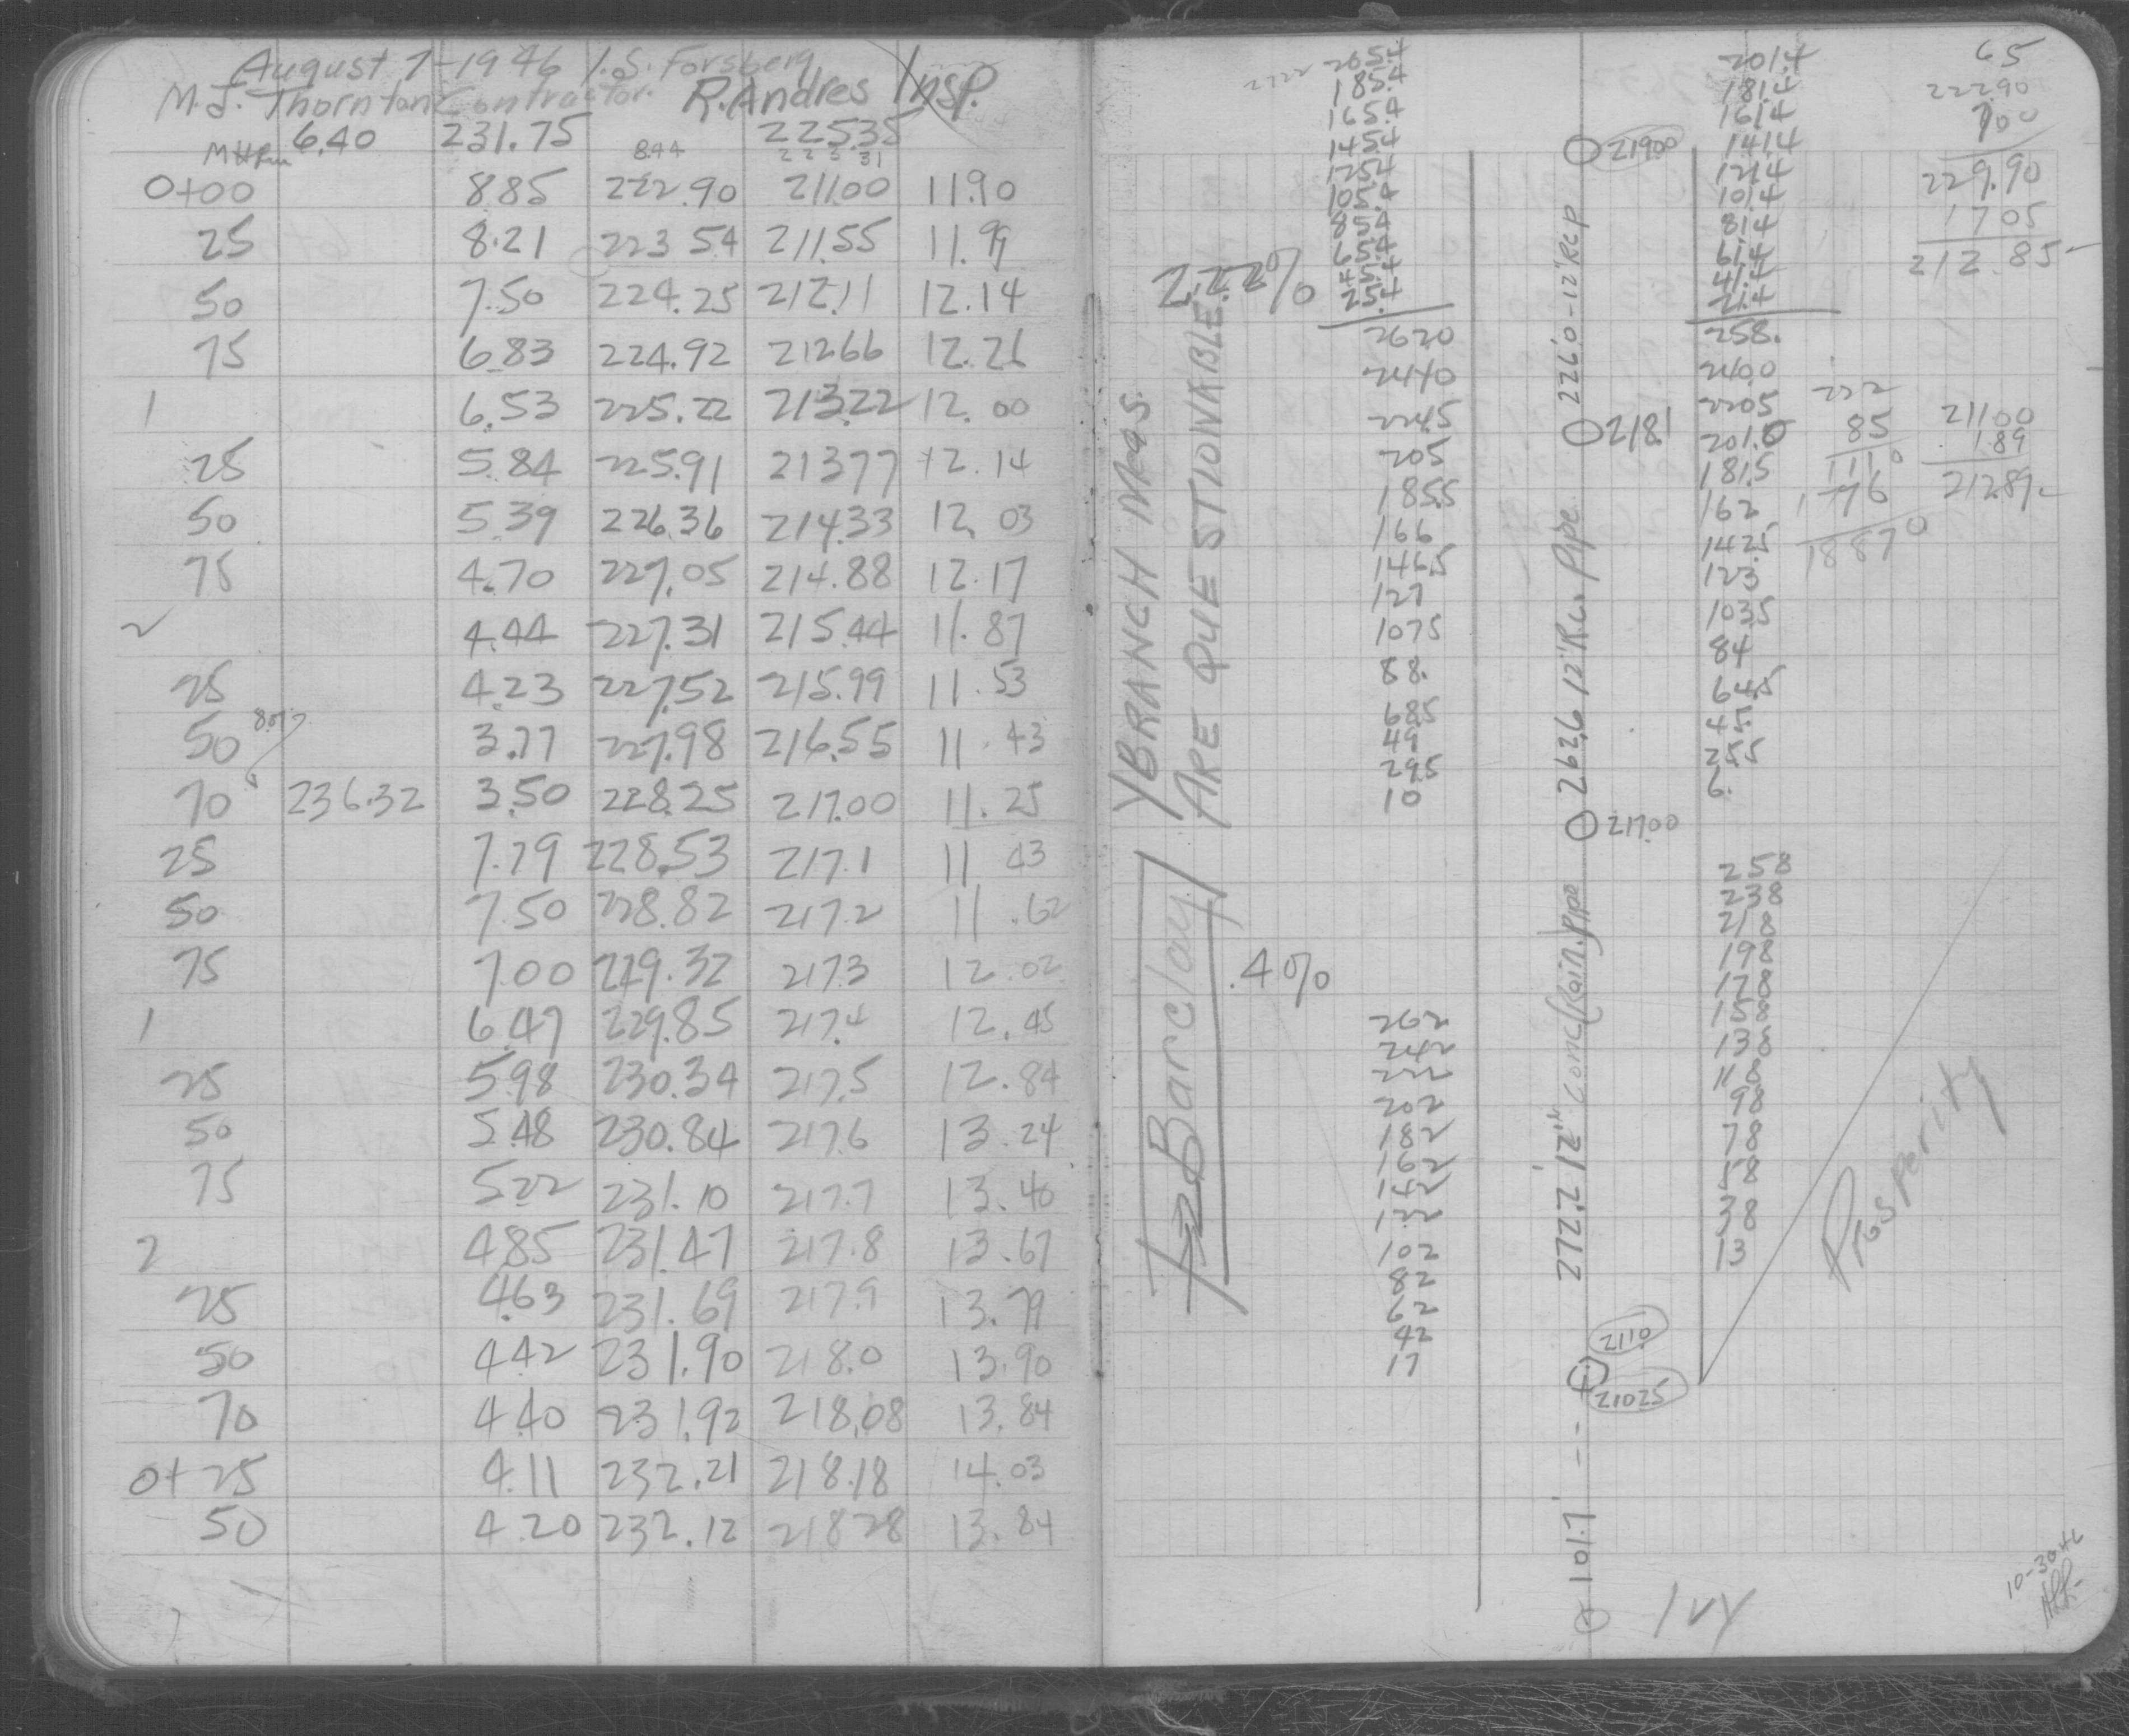 August 7-1946 I.S. Forsberg
M.J. Thornton Contractor. R. Andres Insp.
6.40 231.75 8.44 225.35
223.31
0+00 8.85 222.90 211.00 11.90
25 8.21 223.54 211.55 11.99
50 7.50 224.25 212.11 12.14
75 6.83 224.92 212.66 12.26
1 6.53 225.22 213.22 12.00
25 5.84 225.91 213.77 12.14
50 5.39 226.36 214.33 12.03
75 4.70 227.05 214.88 12.17
2 4.44 227.31 215.44 11.87
25 4.23 227.52 215.99 11.53
50 3.77 227.98 216.55 11.43
70 236.32 3.50 228.25 217.00 11.25
25 7.79 228.53 217.1 11.43
50 7.50 228.82 217.2 11.62
75 7.00 229.32 217.3 12.02
1 6.47 229.85 217.4 12.45
25 5.98 230.34 217.5 12.84
50 5.48 230.84 217.6 13.24
75 5.22 231.10 217.7 13.40
2 4.85 231.47 217.8 13.67
25 4.63 231.69 217.9 13.79
50 4.42 231.90 218.0 13.90
70 4.40 231.92 218.08 13.84
0+25 4.11 232.21 218.18 14.03
50 4.20 232.12 218.28 13.84
65
YBRANCH M's.
ARE QUESTIONABLE
2.22%
265.4
185.4
165.4
145.4
125.4
105.4
85.4
65.4
45.4
25.4
262.0
244.0
224.5
205
185.5
166
146.5
127
107.5
88.
68.5
49
29.5
10
Barclay
.4%
262
242
222
202
182
162
142
122
102
82
62
42
17
219.00
226.0-12" RCP
218.1
262.6 12" Rein. Pipe
217.00
272.2' 12" Conc (Rain.) Pipe
211.0
210.25
101.7'
201.4
181.4
161.4
141.4
121.4
101.4
81.4
61.4
41.4
21.4
258.
240.0
220.5
201.0
181.5
162
142.5
123
103.5
84
64.5
45.
25.5
6.
258
238
218
198
178
158
138
118
98
78
58
38
13
222.90
700
229.90
17 05
212.85
222
85
1110
1776
18870
211.00
1.89
212.89
Prosperity
Ivy
10-30-46